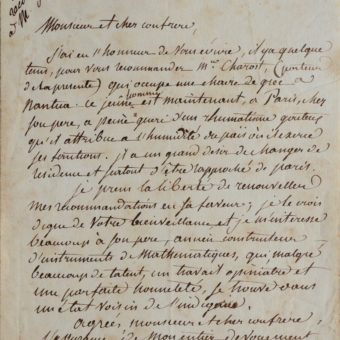 Monsieur et cher confrere,
j'ai eu l'honneur de vous écrire, il y a quelque
tems, pour vous recommander Mr. Charois, (porteur
de la presente) qui occupe une chaire de grec a
Nantua. ce jeune homme est maintenant, a Paris, chez
son pere, a peine guéri d'un rhumatisme goutteux
qu'il attribue a l'humidité du païs où il exerce
ses fonctions. il a un grand desir de changer de
residence et surtout d'être rapproché de paris.
je prens la liberté de renouveller
mes recommandations en sa faveur; je le crois
digne de votre bienveillance, et je m'intéresse
beaucoup a son pere, ancien constructeur
d'instruments de Mathematiques, qui malgré
beaucoup de talent, un travail opiniatre et
une parfaite honnêteté, se trouve dans
un état voisin de l'indigence.
agréez, monsieur et cher confrere,
de mon entier dévouement